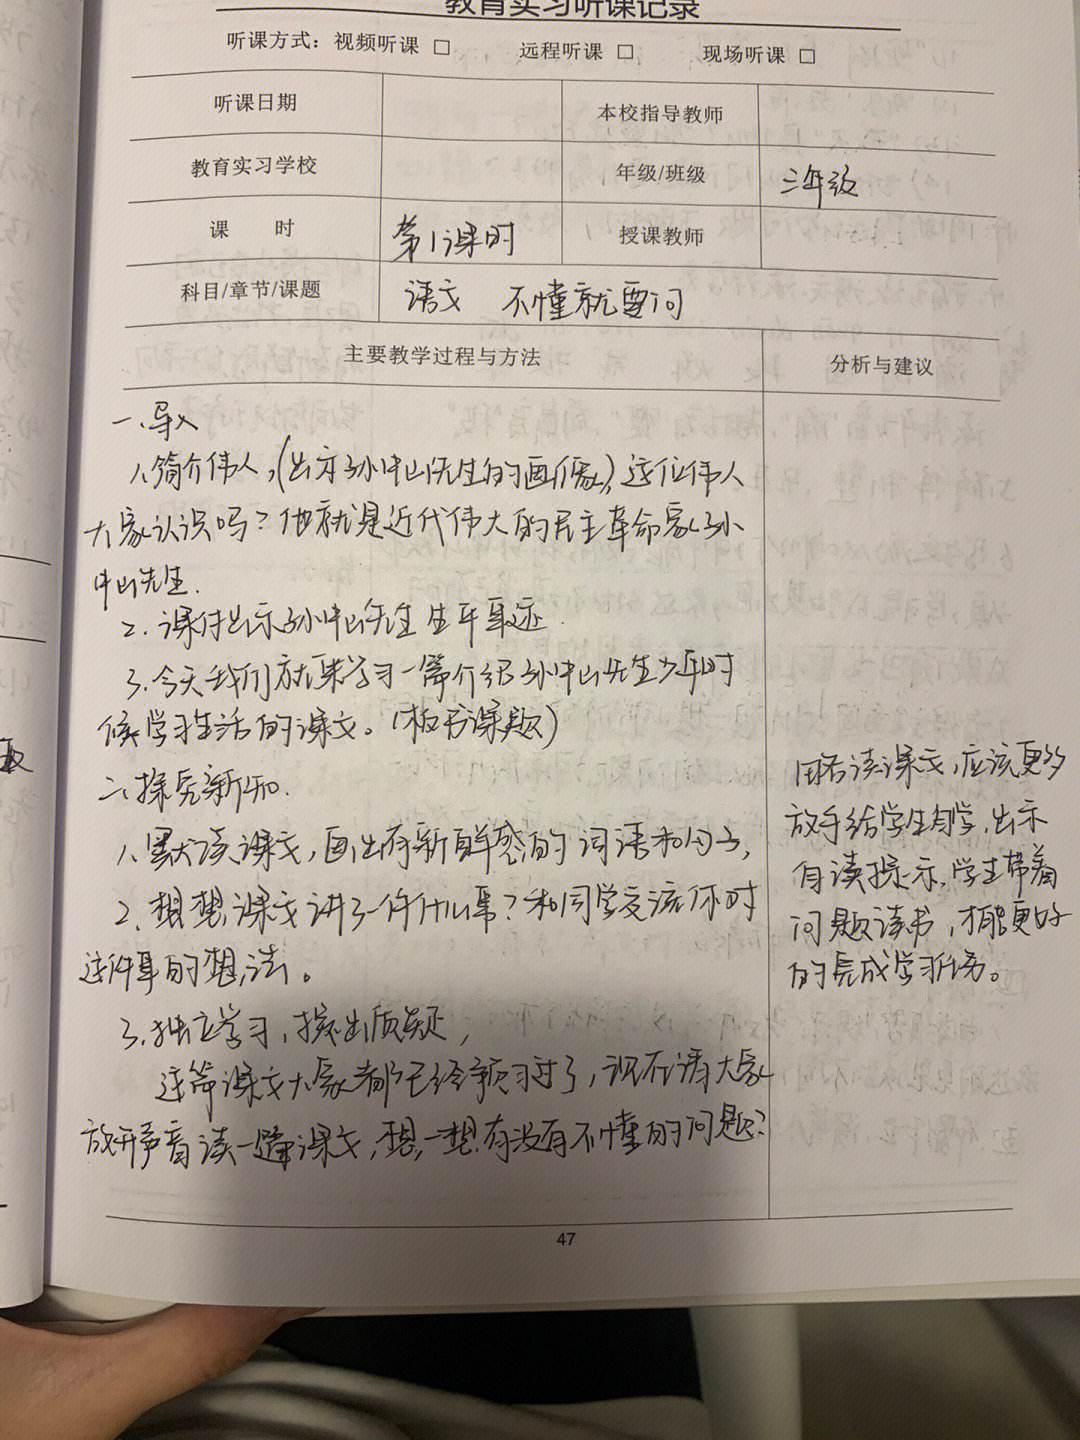 教育实习听课记录
听课方式：视频听课 □ 远程听课 □ 现场听课 □
听课日期 本校指导教师
教育实习学校 年级/班级 三年级
课 时 第1课时 授课教师
科目/章节/课题 语文 不懂就要问
主要教学过程与方法 分析与建议
一、导入
1、简介伟人,(出示孙中山先生的画像),这位伟人
大家认识吗?他就是近代伟大的民主革命家孙
中山先生.
2.课件出示孙中山先生生平事迹.
3.今天我们就来学习一篇介绍孙中山先生少年时
候学习生活的课文。(板书课题)
二、探究新知.
1、默读课文,画出有新鲜感的词语和句子,
2、想想,课文讲了一件什么事?和同学交流你对
这件事的想法。
3.独立学习,提出质疑,
这篇课文大家都已经预习过了,现在请大家
放开声音读一遍课文,想一想.有没有不懂的问题?
读课文,应该更多
放手给学生自学.出示
自读提示,学生带着
问题读书,才能更好
的完成学习任务。
47